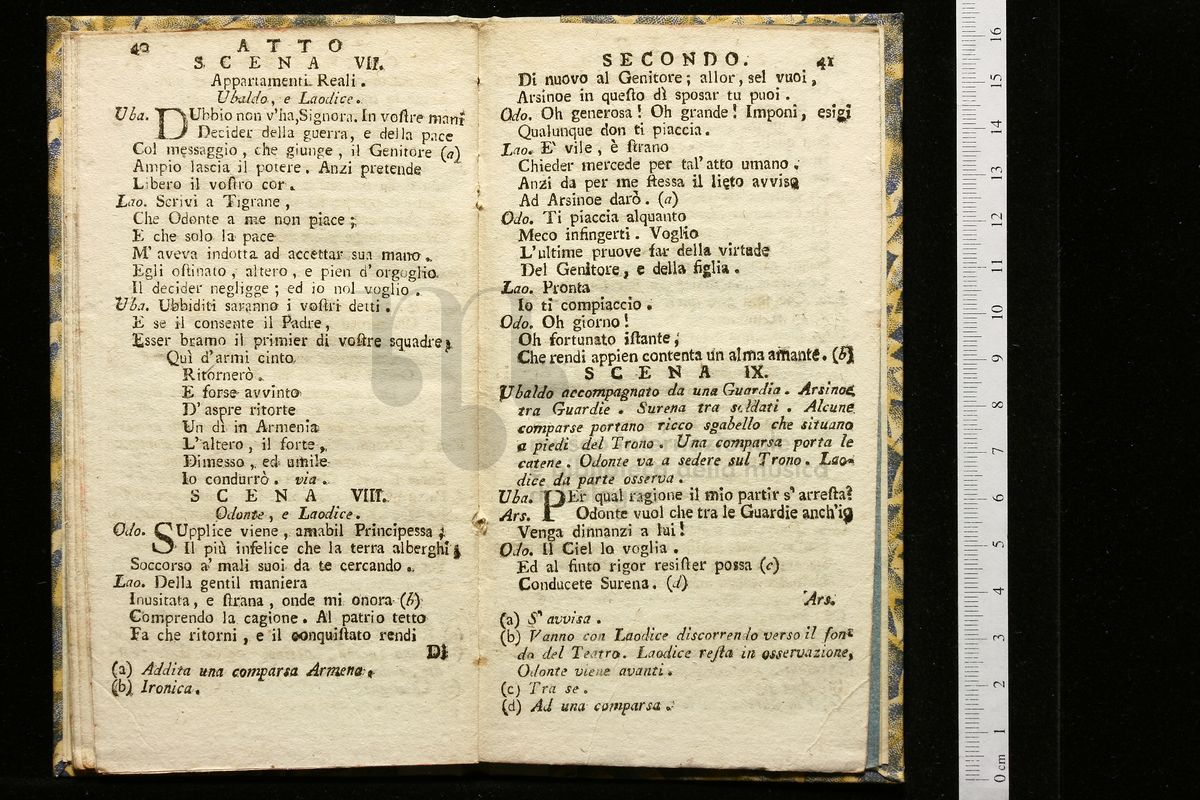 40 ATTO
SCENA VII.
Appartamenti Reali.
Ubaldo, e Laodice.
Uba. DUbbio non v'ha, Signora. In voſtre mani
Decider della guerra, e della pace
Col meſſaggio, che giunge, il Genitore (a)
Ampio laſcia il potere. Anzi pretende
Libero il voſtro cor.
Lao. Scrivi a Tigrane,
Che Odonte a me non piace;
E che ſolo la pace
M'aveva indotta ad accettar sua mano.
Egli oſtinato, altero, e pien d'orgoglio
Il decider neglige; ed io nol voglio.
Uba. Ubbiditi saranno i voſtri detti.
E se il conſente il Padre,
Eſſer bramo il primier di voſtre squadre;
Quì d'armi cinto
Ritornerò.
E forse avvinto
D'aspre ritorte
Un dì in Armenia
L'altero, il forte,
Dimesso, ed umile
Io condurrò. via.
SCENA VIII.
Odonte, e Laodice.
Odo. SUpplice viene, amabil Principessa;
Il più infelice che la terra alberghi;
Soccorso a' mali suoi da te cercando.
Lao. Della gentil maniera
Inusitata, e ſtrana, onde mi onora (b)
Comprendo la cagione. Al patrio tetto
Fa che ritorni, e il conquiſtato rendi
Di
(a) Addita una comparsa Armena.
(b) Ironica.
SECONDO. 41
Di nuovo al Genitore; allor, sel vuoi,
Arsinoe in queſto dì sposar tu puoi.
Odo. Oh generosa! Oh grande! Imponi, esigi
Qualunque don ti piaccia.
Lao. E' vile, è ſtrano
Chieder mercede per tal'atto umano.
Anzi da per me ſtessa il lieto avviso
Ad Arsinoe darò. (a)
Odo. Ti piaccia alquanto
Meco infingerti. Voglio
L'ultime pruove far della virtude
Del Genitore, e della figlia.
Lao. Pronta
Io ti compiaccio.
Odo. Oh giorno!
Oh fortunato iſtante,
Che rendi appien contenta un alma amante. (b)
SCENA IX.
Ubaldo accompagnato da una Guardia. Arsinoe
tra Guardie. Surena tra soldati. Alcune
comparse portano ricco sgabello che situano
a piedi del Trono. Una comparsa porta le
catene. Odonte va a sedere sul Trono. Lao-
dice da parte osserva.
Uba. PEr qual ragione il mio partir s'arreſta?
Ars. Odonte vuol che tra le Guardie anch'io
Venga dinnanzi a lui!
Odo. Il Ciel lo voglia.
Ed al finto rigor resiſter possa (c)
Conducete Surena. (d)
Ars.
(a) S'avvisa.
(b) Vanno con Laodice discorrendo verso il fon-
do del Teatro. Laodice reſta in osservazione,
Odonte viene avanti.
(c) Tra se.
(d) Ad una comparsa.
0 cm 1 2 3 4 5 6 7 8 9 10 11 12 13 14 15 16